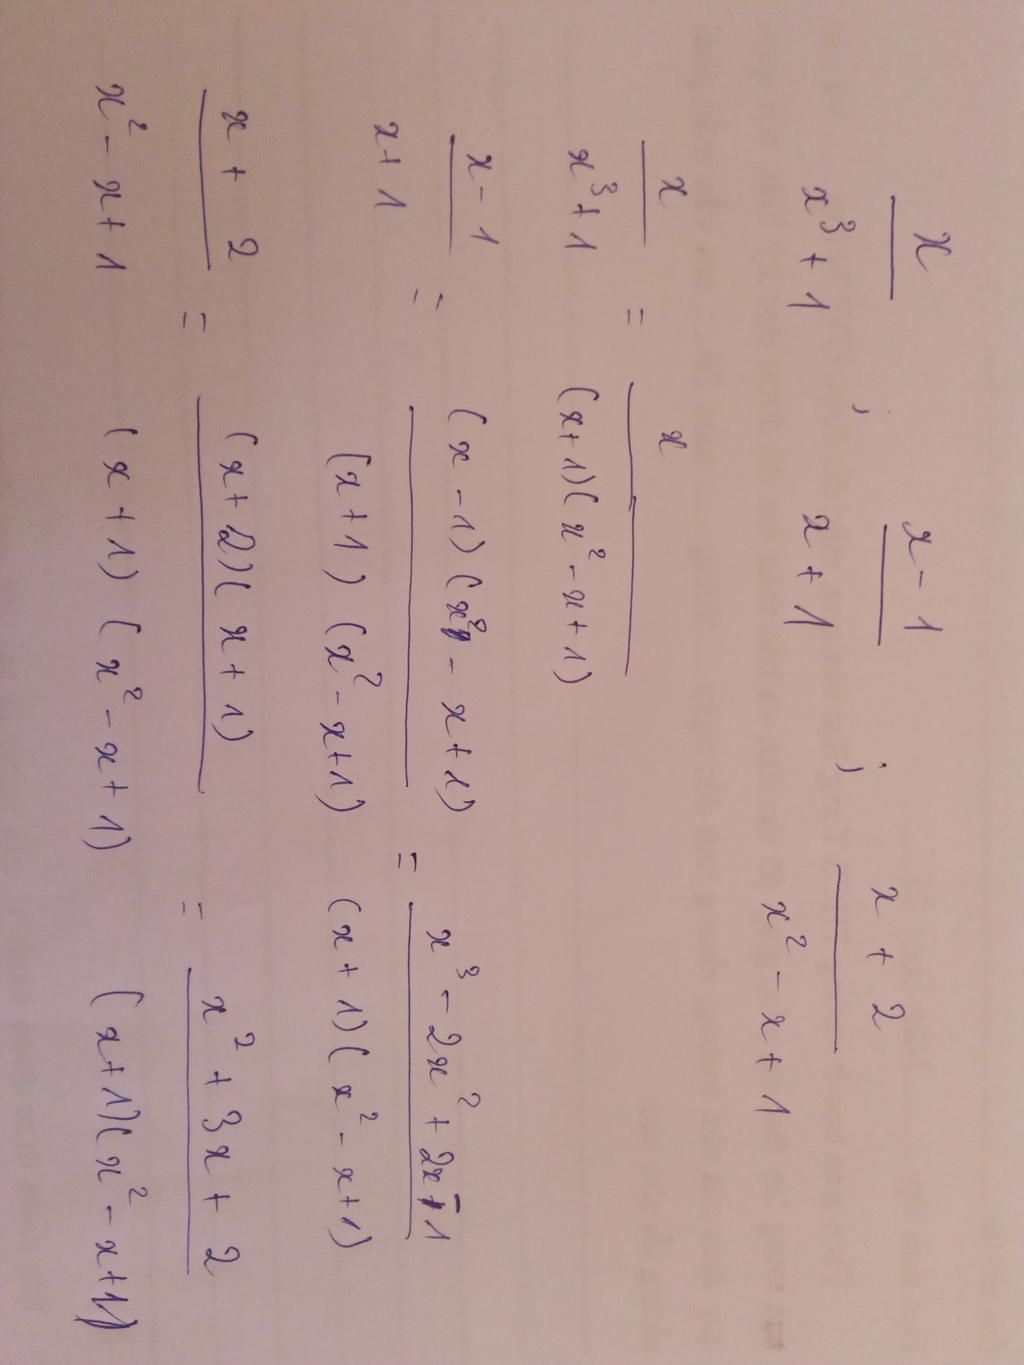 x/(x³+1) ; (x-1)/(x+1) ; (x+2)/(x²-x+1)
x/(x³+1) = x/((x+1)(x²-x+1))
(x-1)/(x+1) = ((x-1)(x²-x+1))/((x+1)(x²-x+1)) = (x³-2x²+2x-1)/((x+1)(x²-x+1))
(x+2)/(x²-x+1) = ((x+2)(x+1))/((x+1)(x²-x+1)) = (x²+3x+2)/((x+1)(x²-x+1))